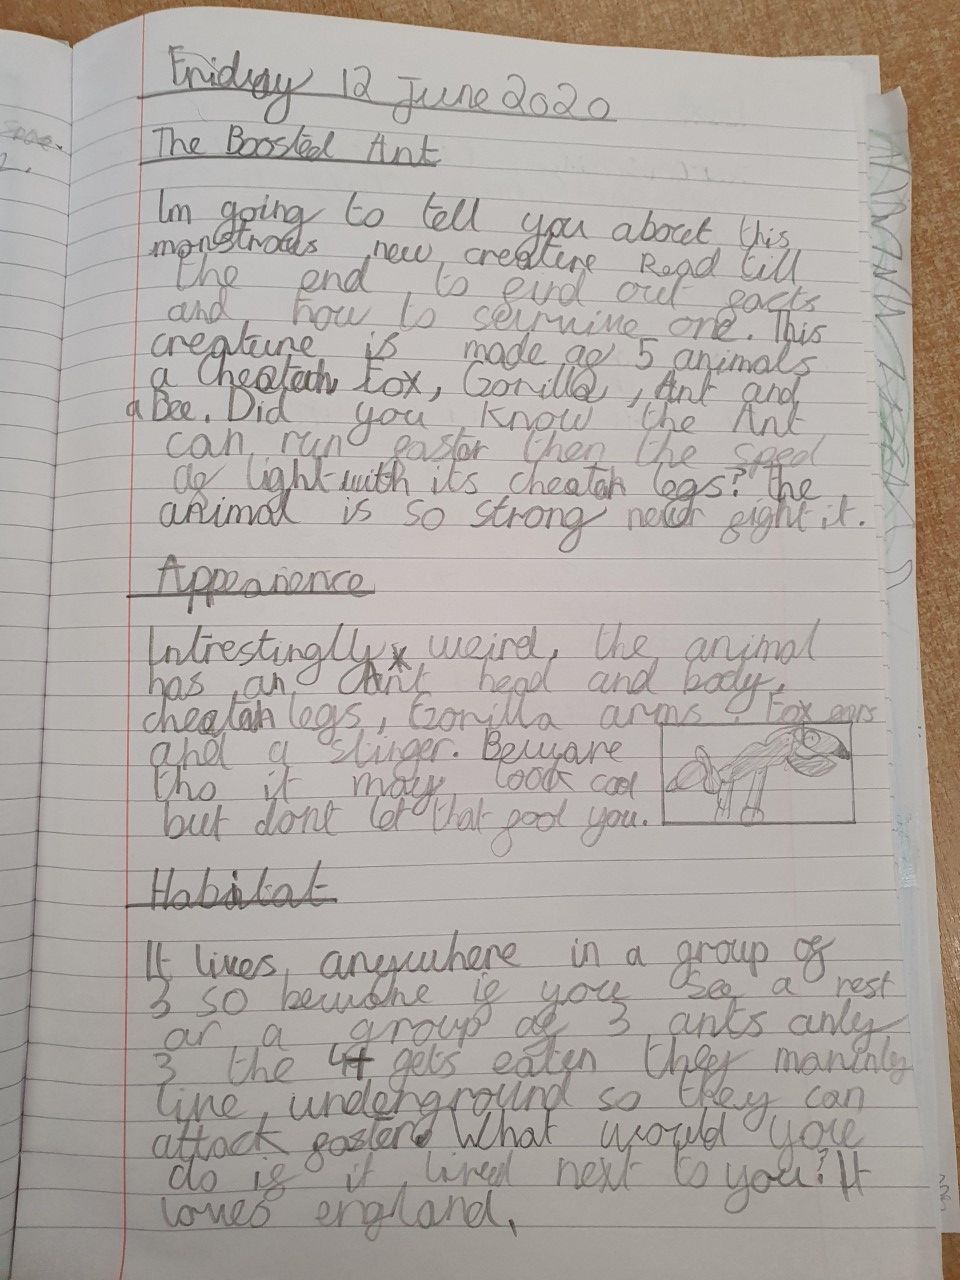 Friday 12 June 2020
The Boosted Ant
Im going to tell you about this
monstrous new creature Read till
the end to find out facts
and how to survive one. This
creature is made of 5 animals
a Cheatah Fox, Gorilla, Ant and
a Bee. Did you know the Ant
can run faster then the speed
of light with its cheatah legs? The
animal is so strong never fight it.
Appearence
Intrestinglly weird, the animal
has an Ant head and body,
cheatah legs, Gorilla arms, Fox ears
and a stinger. Beware
tho it may look cool
but dont let that fool you.
Habitat
It lives anywhere in a group of
3 so beware if you see a nest
or a group of 3 ants only
3 the 4 gets eaten they maninly
live underground so they can
attack faster. What would you
do if it lived next to you? It
loves england.